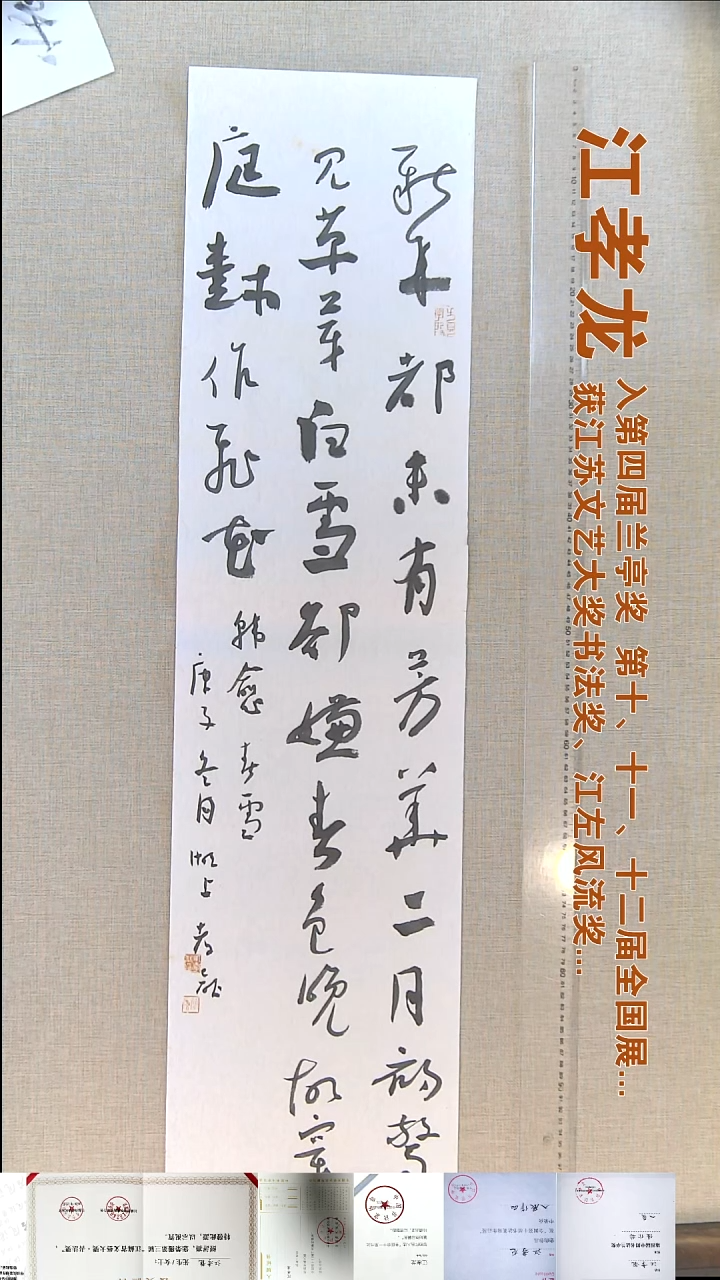 江孝龙
入第四届兰亭奖 第十、十一、十二届全国展...
获江苏文艺大奖书法奖、江左风流奖...
新年都未有芳華二月初驚
見草芽白雪卻嫌春色晚故穿
庭樹作飛花 韓愈春雪
庚子冬月湖上孝龍